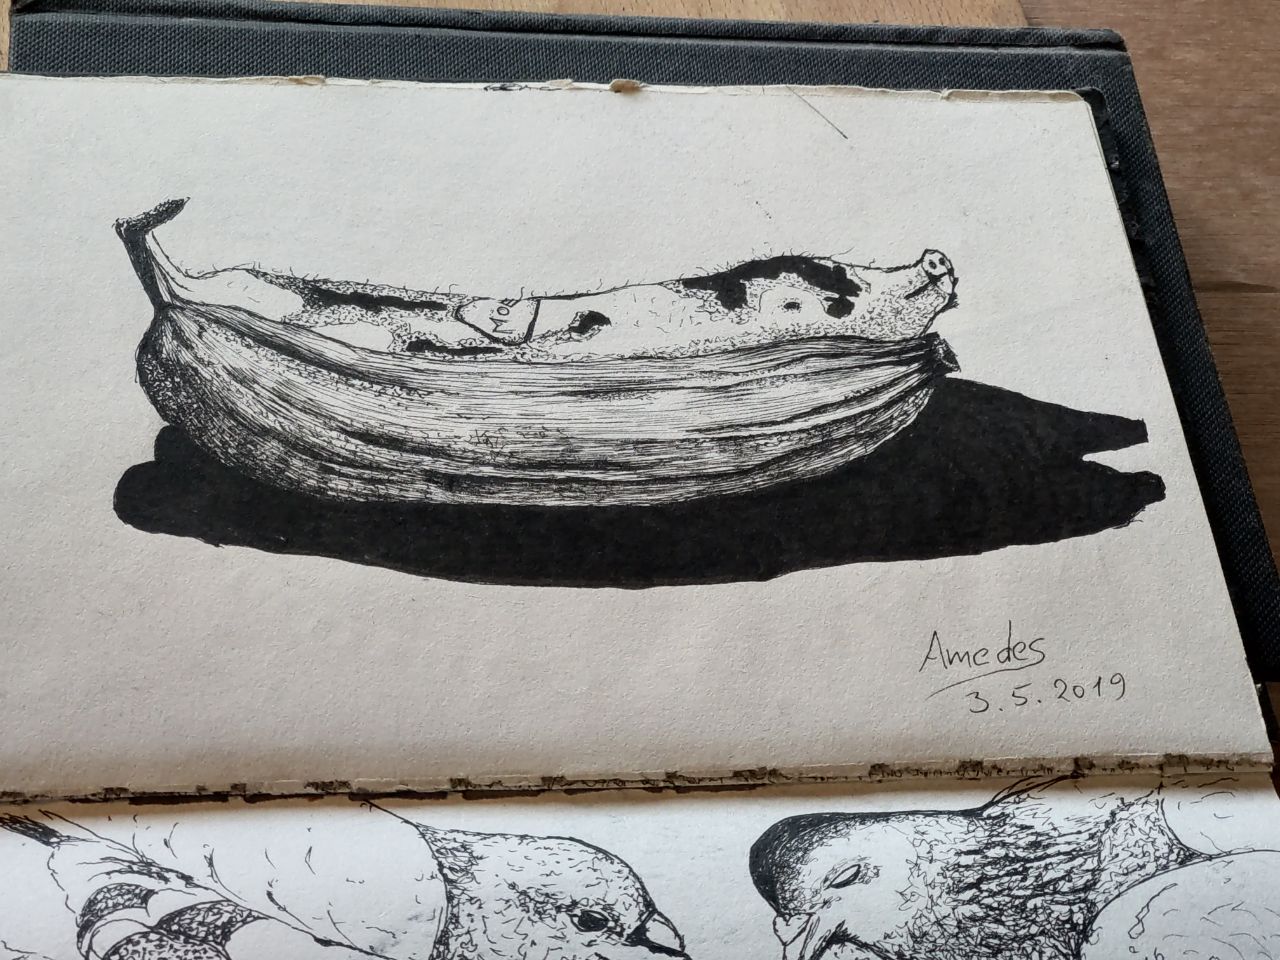 MO
Amedes
3.5.2019